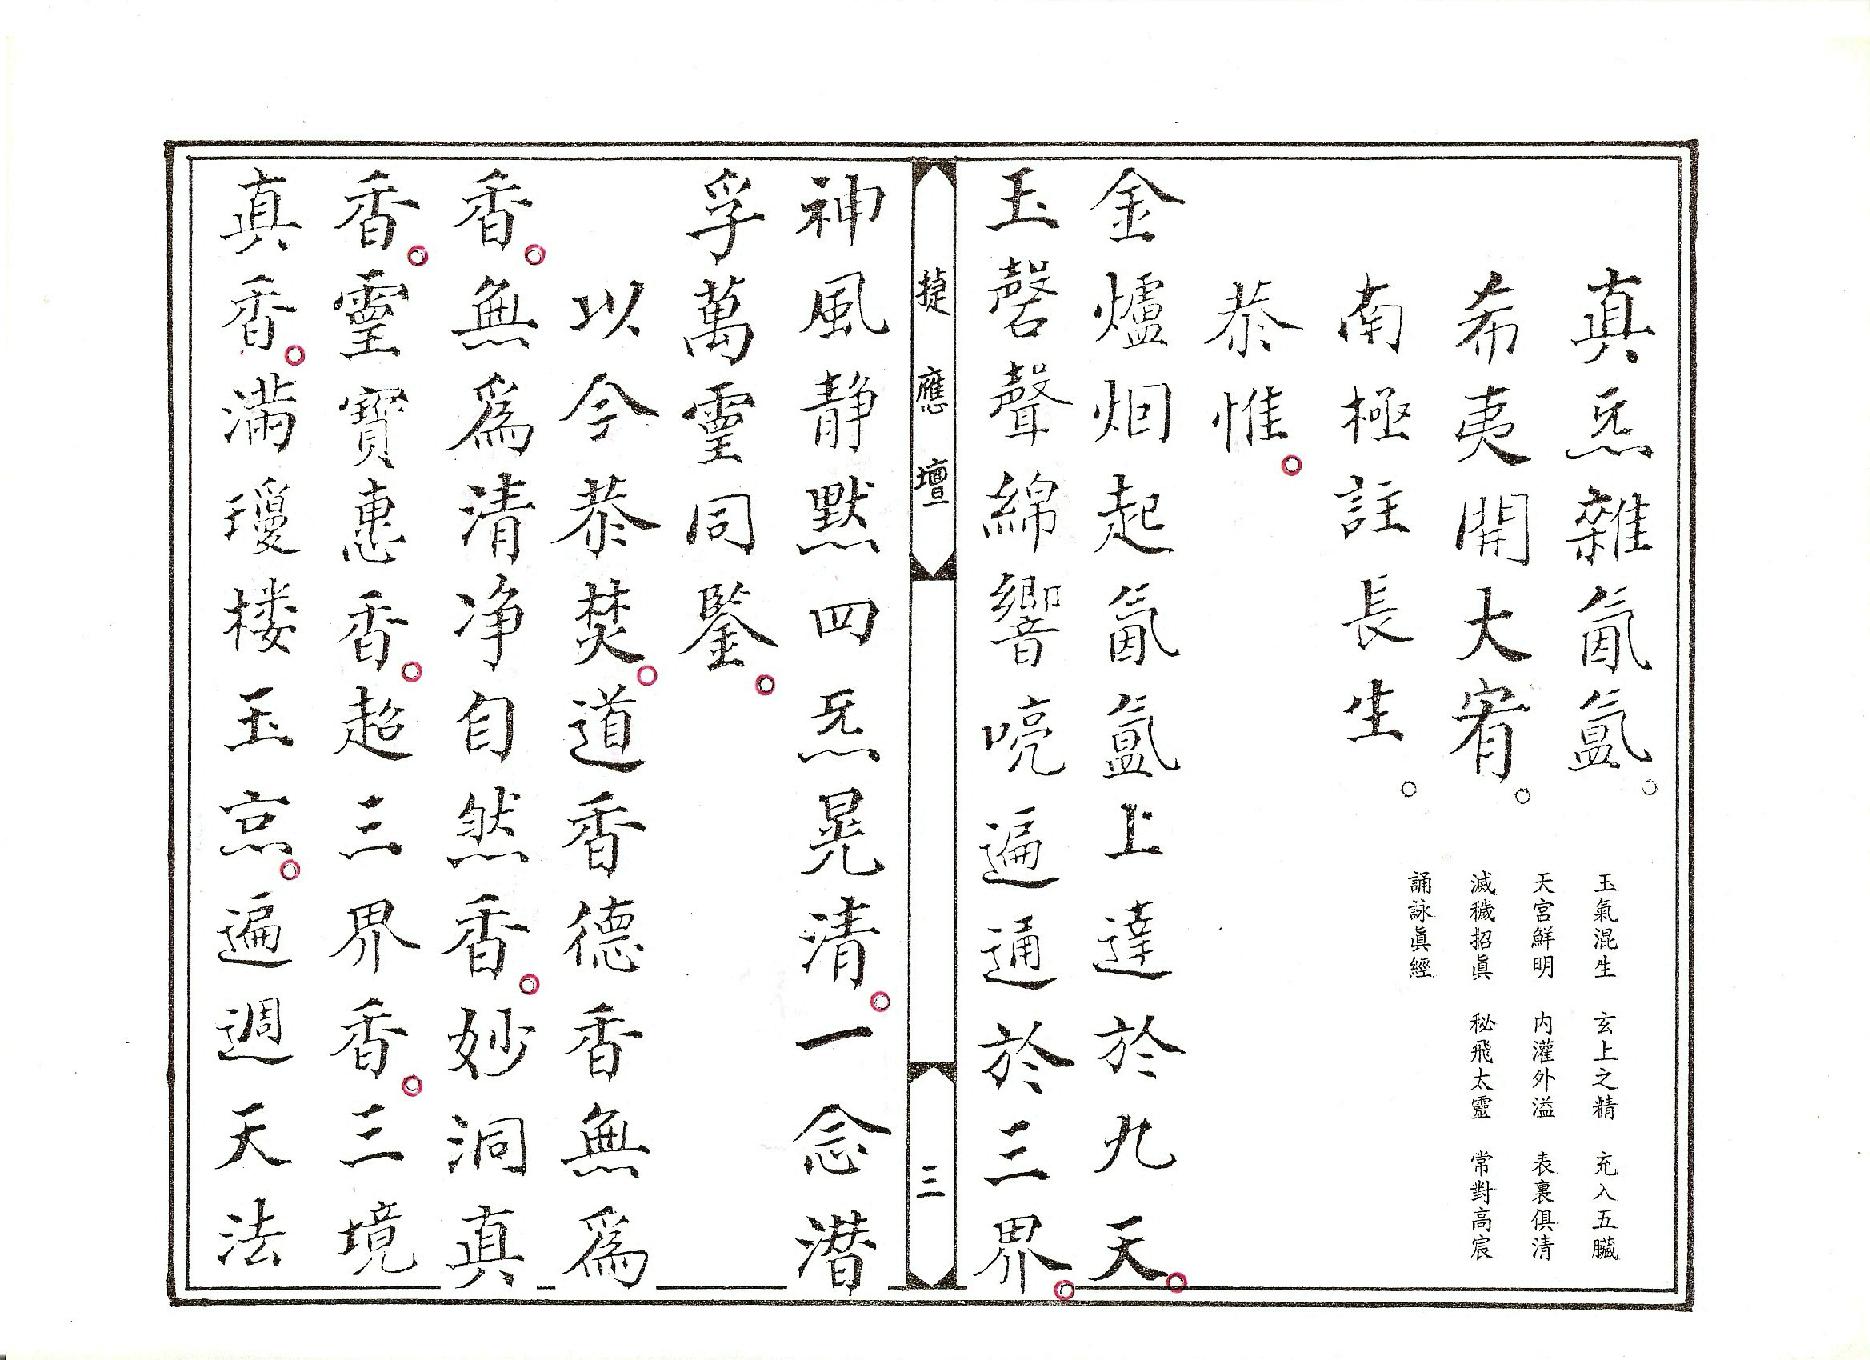 真炁雜氤氳。
希夷開大宥。
南極註長生。
恭惟。
玉氣混生 玄上之精 充入五臟
天宮鮮明 內灌外溢 表裏俱清
滅穢招眞 秘飛太靈 常對高宸
誦詠眞經
金爐烟起氤氳上達於九天。
玉磬聲綿響喨遍通於三界。
捷應壇
三
神風静默四炁晃清。一念潛
孚萬靈同鑒。
以今恭焚。道香德香無爲
香。無爲清净自然香。妙洞真
香。靈寶惠香。超三界香。三境
真香。满瓊楼玉亰。遍週天法